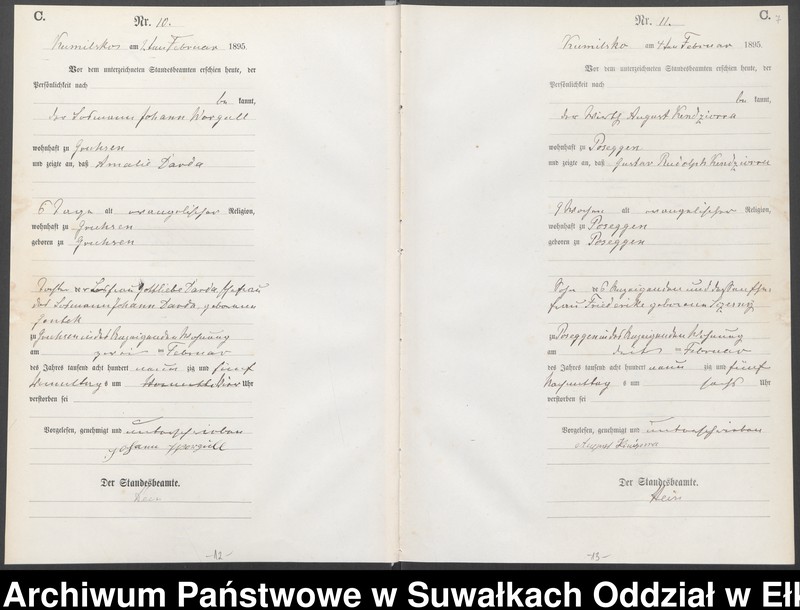 C.
Nr. 10.
Kumilsko am ten Februar 1895.
Vor dem unterzeichneten Standesbeamten erschien heute, der
Persönlichkeit nach
be kannt,
der Losmann Johann Worgull
wohnhaft zu Gruhsen
und zeigte an, daß Amalie Darda
6 Tage alt evangelischer Religion,
wohnhaft zu Gruhsen
geboren zu Gruhsen
Tochter der Losfrau Gottliebe Darda, Ehefrau
des Losmann Johann Darda, geborenen
zu Gruhsen in des Anzeigenden Wohnung
am zwei ten Februar
des Jahres tausend acht hundert neun zig und fünf
Vormittags um Uhr
verstorben sei
Vorgelesen, genehmigt und unterschrieben
Johann Worgull
Der Standesbeamte.
Hein
-12-
C. 7
Nr. 11.
Kumilsko am 4ten Februar 1895.
Vor dem unterzeichneten Standesbeamten erschien heute, der
Persönlichkeit nach
be kannt,
der Wirth August Kendziorra
wohnhaft zu Poseggen
und zeigte an, daß Gustav Rudolph Kendziorra
9 Wochen alt evangelischer Religion,
wohnhaft zu Poseggen
geboren zu Poseggen
Sohn des Anzeigenden und dessen Ehe-
frau Friederike geborenen
zu Poseggen in des Anzeigenden Wohnung
am drit ten Februar
des Jahres tausend acht hundert neun zig und fünf
Nachmittags um sechs Uhr
verstorben sei
Vorgelesen, genehmigt und unterschrieben
August
Der Standesbeamte.
Hein
-13-
Archiwum Państwowe w Suwałkach Oddział w Eł